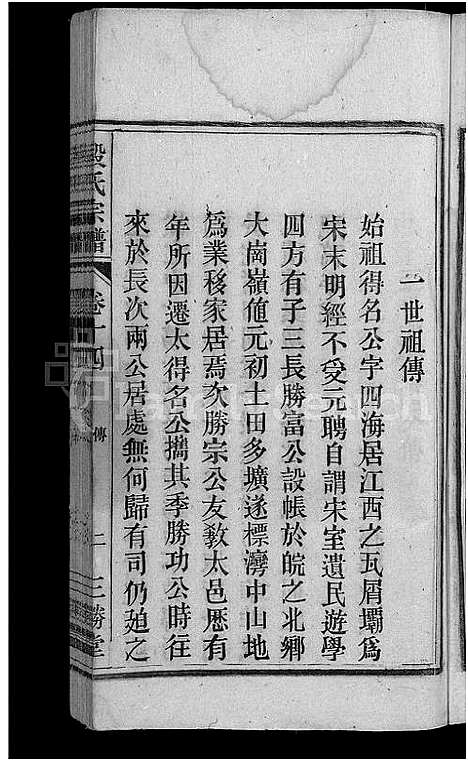 一世祖傳
始祖得名公字四海居江西之瓦屑壩爲
宋末明經不受元聘自謂宋室遺民遊學
四方有子三長勝富公設帳於皖之北鄉
大崗嶺値元初土田多壙遂標灣中山地
爲業移家居焉次勝宗公友教太邑歷有
年所因遷太得名公攜其季勝功公時往
來於長次兩公居處無何歸有司仍廹之
殷氏宗譜
卷十四
傳
二
三勝堂